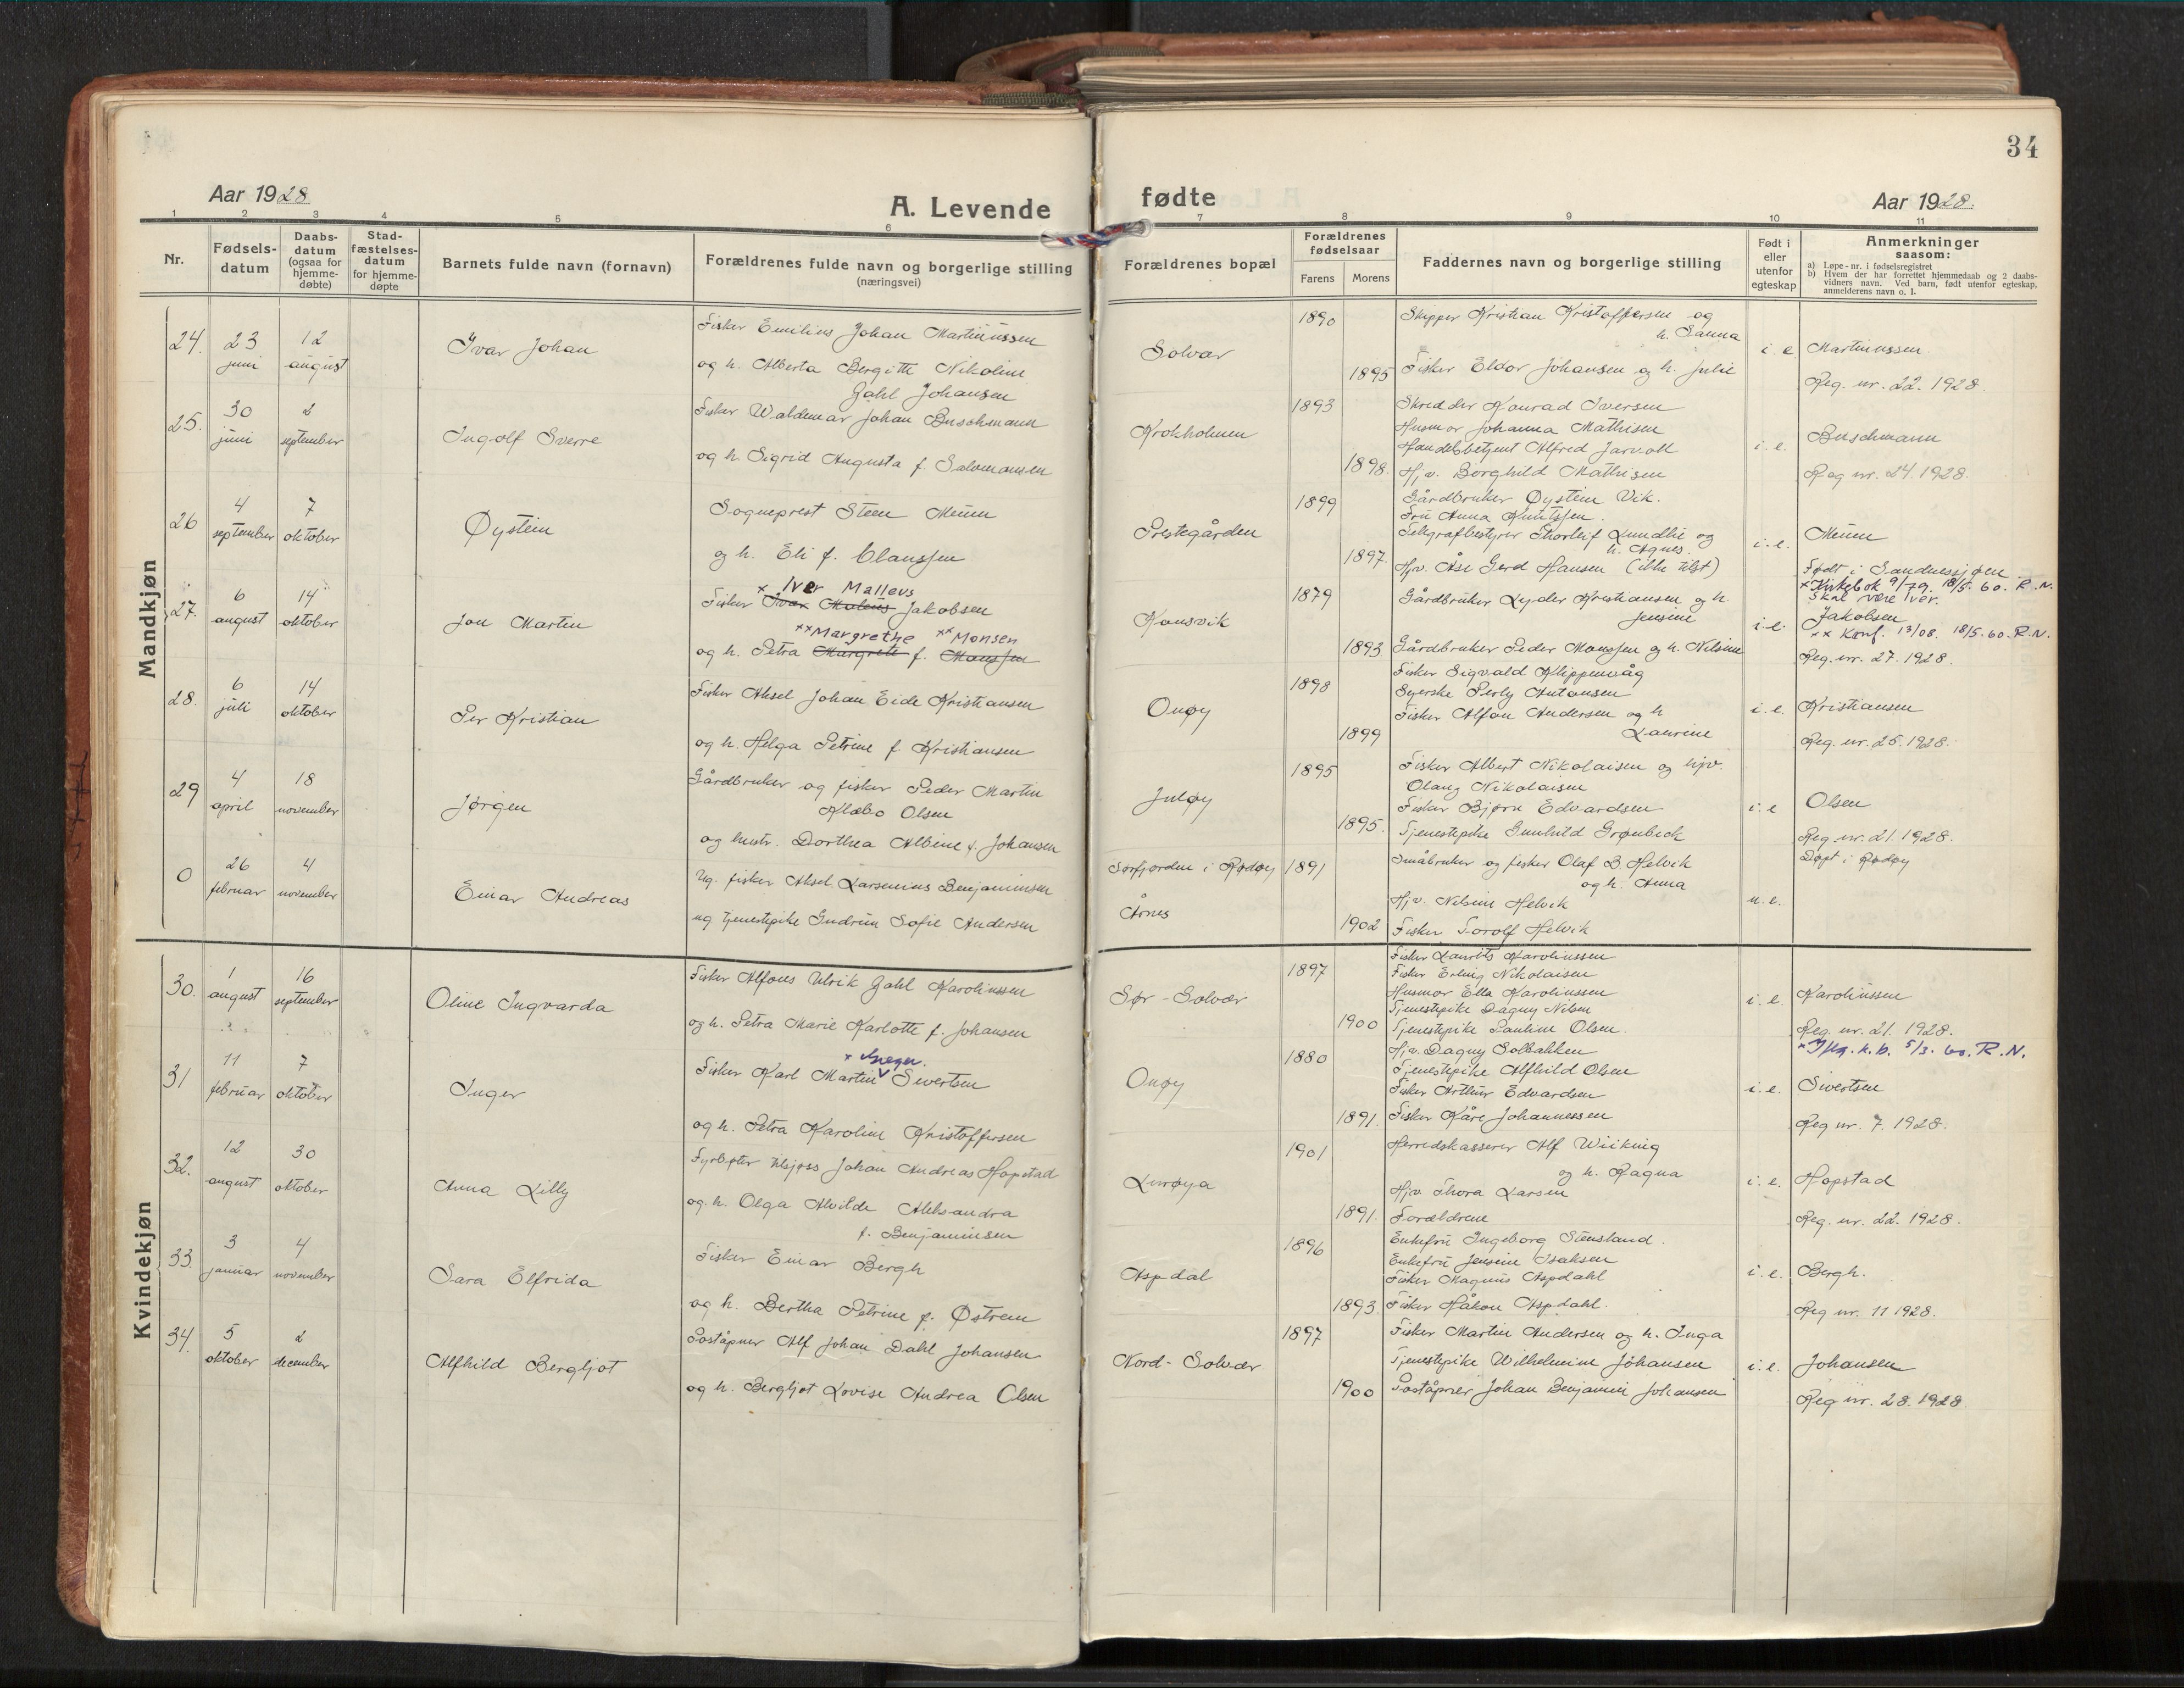 34
Aar 1928
A. Levende
fødte
Aar 1928.
1 2 3 4 5 6 7 8 9 10 11
Nr.
Fødsels-
datum
Daabs-
datum
(ogsaa for
hjemme-
døbte)
Stad-
fæstelses-
datum
for hjemme-
døpte
Barnets fulde navn (fornavn)
Forældrenes fulde navn og borgerlige stilling
(næringsvei)
Forældrenes bopæl
Forældrenes
fødselsaar
Farens Morens
Faddernes navn og borgerlige stilling
Født i
eller
utenfor
egteskap
Anmerkninger
saasom:
a) Løpe-nr. i fødselsregistret
b) Hvem der har forrettet hjemmedaab og 2 daabs-
vidners navn. Ved barn, født utenfor egteskap,
anmelderens navn o. l.
Mandkjøn
24.
23
juni
12
august
Ivar Johan
Fisker Emilius Johan Martinussen
og h. Alberta Bergitte Nikoline
Gahl Johansen
Solvær
1890
1895
Skipper Kristian Kristoffersen og
h. Sanna
Fisker Eldor Johansen og h. Julie
i. e
Martinussen.
Reg. nr. 22. 1928.
25.
30
juni
2
september
Ingolf Sverre
Fisker Waldemar Johan Buschmann
og h. Sigrid Augusta f. Salomonsen
Krokholmen
1893
1898.
Skredder Konrad Iversen
Husmor Johanna Mathisen
Handelsbetjent Alfred Jarvoll
Hjv. Borghild Mathisen
i. e.
Buschmann
Reg nr. 24. 1928.
26
4
september
7
oktober
Øystein
Sogneprest Steen Meuen
og h. Eli f. Clanssen
Prestegården
1899
1897.
Gårdbruker Øystein Vik.
Fru Anna Knutssen.
Telegrafbestyrer Thorleif Lundlie og
h. Agnes.
Hjv. Åse Gerd Hansen (ikke tilst)
i. e.
Meuen
Født i Sandnessjøen
27.
6
august
14
oktober
Jon Martin
x Iver Mallevs
Fisker Ivar Maleus Jakobsen
xx Margrethe xx Monsen
og h. Petra Margrete f. Monssen
Konsvik
1879
1893
Gårdbruker Lyder Kristiansen og h.
Jensine
Gårdbruker Peder Monssen og h. Nilsine
i. e.
x Kirkebok 9/79. 18/5. 60. R. N.
skal være Iver.
Jakobsen
xx Konf. 13/08. 18/5. 60. R. N.
Reg. nr. 27. 1928.
28.
6
juli
14
oktober
Per Kristian
Fisker Aksel Johan Eide Kristiansen
og h. Helga Petrine f. Kristiansen
Onøy
1898
1899
Fisker Sigvald Klippenvåg
Syerske Perly Antonsen
Fisker Alfon Andersen og h
Laurine
i. e.
Kristiansen
Reg. nr. 25. 1928.
29
4
april
18
november
Jørgen
Gårdbruker og fisker Peder Martin
Klæbo Olsen
og hustr. Dorthea Albine f. Johansen
Juløy
1895
1895.
Fisker Albert Nikolaisen og hjv.
Olaug Nikolaisen
Fisker Bjørn Edvardsen
Tjenestepike Gunhild Grønbeck
i. e
Olsen
Reg. nr. 21. 1928.
0
26
februar
4
november
Einar Andreas
Ug. fisker Aksel Larsenius Benjaminsen
ug tjenestepike Gudrun Sofie Andersen
Sørfjorden i Rødøy
Årnes
1891
1902
Småbruker og fisker Olaf B. Helvik
og h. Anna
Hjv. Nilsine Helvik
Fisker Torolf Helvik
u. e.
Døpt i Rødøy
Kvindekjøn
30.
1
august
16
september
Oline Ingvarda
Fisker Alfons Ulrik Gahl Karolinssen
og h. Petra Marie Karlotte f. Johansen
Sør-Solvær
1897
1900
Fisker Laurits Karolinssen
Fisker Erling Nikolaisen
Husmor Ella Karolinssen
Tjenestepike Dagny Nilsen
Tjenestepike Pauline Olsen.
i. e.
Karolinssen
Reg. nr. 21. 1928.
31
11
februar
7
oktober
Inger
Fisker Karl Martin Sivertsen
og h. Petra Karoline Kristoffersen
Onøy
1880
1891.
Hjv. Dagny Solbakken
Tjenestepike Alfhild Olsen
Fisker Arthur Edvardsen
Fisker Kåre Johannessen
i. e.
k. b. 5/3. 60. R. N.
Sivertsen
Reg nr. 7. 1928.
32.
12
august
30
oktober
Anna Lilly
Fyrbøter tilsjøss Johan Andreas Hopstad
og h. Olga Alvilde Aleksandra
f. Benjaminsen
Lurøya
1901
1891.
Herredskasserer Alf Wiiknig
og h. Ragna
Hjv. Thora Larsen
Forældrene
i. e.
Hopstad
Reg. nr. 22. 1928.
33.
3
januar
4
november
Sara Elfrida
Fisker Einar Bergh
og h. Bertha Petrine f. Østrem
Aspdal
1896
1893.
Enkefru Ingeborg Stensland.
Enkefru Jensine Isaksen
Fisker Magnus Aspdahl
Fisker Håkon Aspdahl.
i. e.
Bergh.
Reg nr. 11 1928.
34.
5
oktober
2
december
Alfhild Bergljot
Poståpner Alf Johan Dahl Johansen
og h. Bergljot Lovise Andrea Olsen
Nord-Solvær
1897
1900
Fisker Martin Andersen og h. Inga
Tjenestepike Wilhelmine Johansen
Poståpner Johan Benjamin Johansen
i. e.
Johansen
Reg nr. 28. 1928.